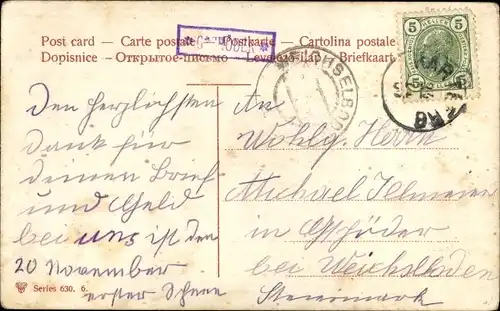 Post card — Carte postale — Postkarte — Cartolina postale
Dopisnice — Открытое письмо — Levelező-Lap — Briefkaart
5 HELLER 5
WEICHSELBODEN
Den herzlichsten
Dank für
deinen Brief
und Geld
bei uns ist den
20 November
erster Schnee
An
Wohlg. Herrn
Michael
in Gschöder
bei Weichselboden
Steiermark
Series 630. 6.